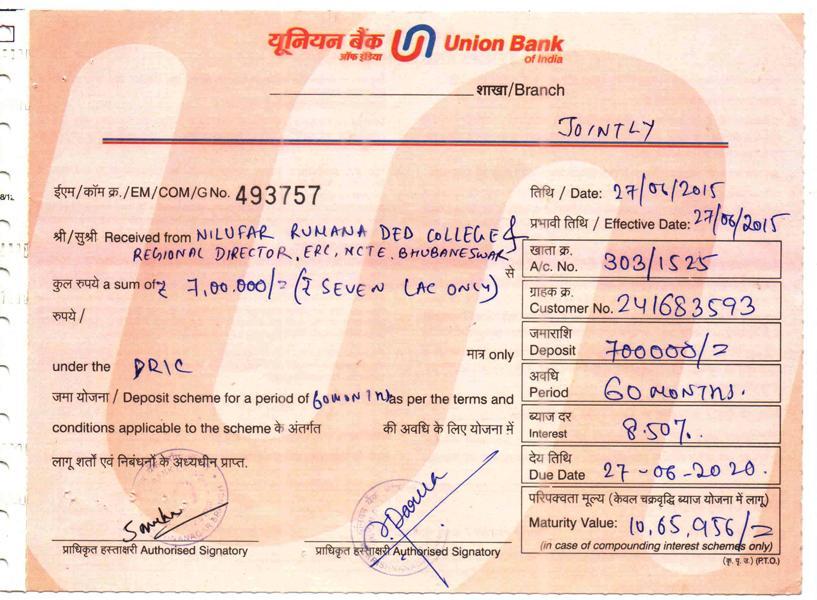 यूनियन बैंक Union Bank
ऑफ इंडिया of India
शाखा/Branch
JOINTLY
ईएम/कॉम क्र./EM/COM/G No. 493757
तिथि / Date: 27/06/2015
प्रभावी तिथि / Effective Date: 27/06/2015
श्री/सुश्री Received from NILUFAR RUMANA DED COLLEGE &
REGIONAL DIRECTOR, ERC, NCTE, BHUBANESWAR से
कुल रुपये a sum of ₹ 7,00.000/= (₹ SEVEN LAC ONLY)
रुपये /
मात्र only
under the DRIC
जमा योजना / Deposit scheme for a period of 60 MONTHS as per the terms and
conditions applicable to the scheme के अंतर्गत की अवधि के लिए योजना में
लागू शर्तों एवं निबंधनों के अध्यधीन प्राप्त.
खाता क्र.
A/c. No. 303/1525
ग्राहक क्र.
Customer No. 241683593
जमाराशि
Deposit 700000/=
अवधि
Period 60 MONTHS.
ब्याज दर
Interest 8.50%.
देय तिथि
Due Date 27-06-2020.
परिपक्वता मूल्य (केवल चक्रवृद्धि ब्याज योजना में लागू)
Maturity Value: 10,65,956/=
(in case of compounding interest schemes only)
प्राधिकृत हस्ताक्षरी Authorised Signatory
प्राधिकृत हस्ताक्षरी Authorised Signatory
(कृ. पृ. उ.) (P.T.O.)